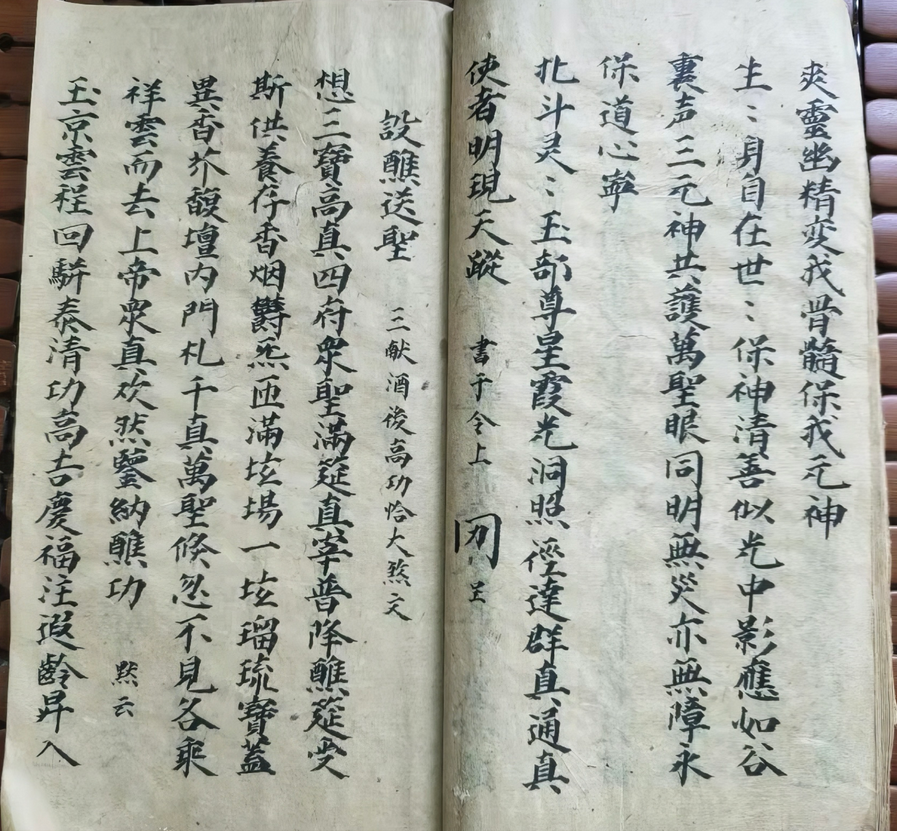 爽靈幽精变我骨髓保我元神
生〻身自在世〻保神清善似光中影應如谷
裏声三元神共護萬聖眼同明無災亦無障永
保道心寧
北斗灵〻玉部尊皇霞光洞照徑達群真通真
使者明現天蹤 書于令上 罡
設醮送聖 三献酒後高功恰大然文
想三寶高真四府眾聖滿筵真宰普降醮筵受
斯供養存香烟欝炁匝滿坛場一坛瑠琉寶蓋
異香芥馥壇内門札千真萬聖倐忽不見各乘
祥雲而去上帝眾真欢然鑒納醮功 黙云
玉京雲程回駢泰清功高吉慶福注遐齡昇入